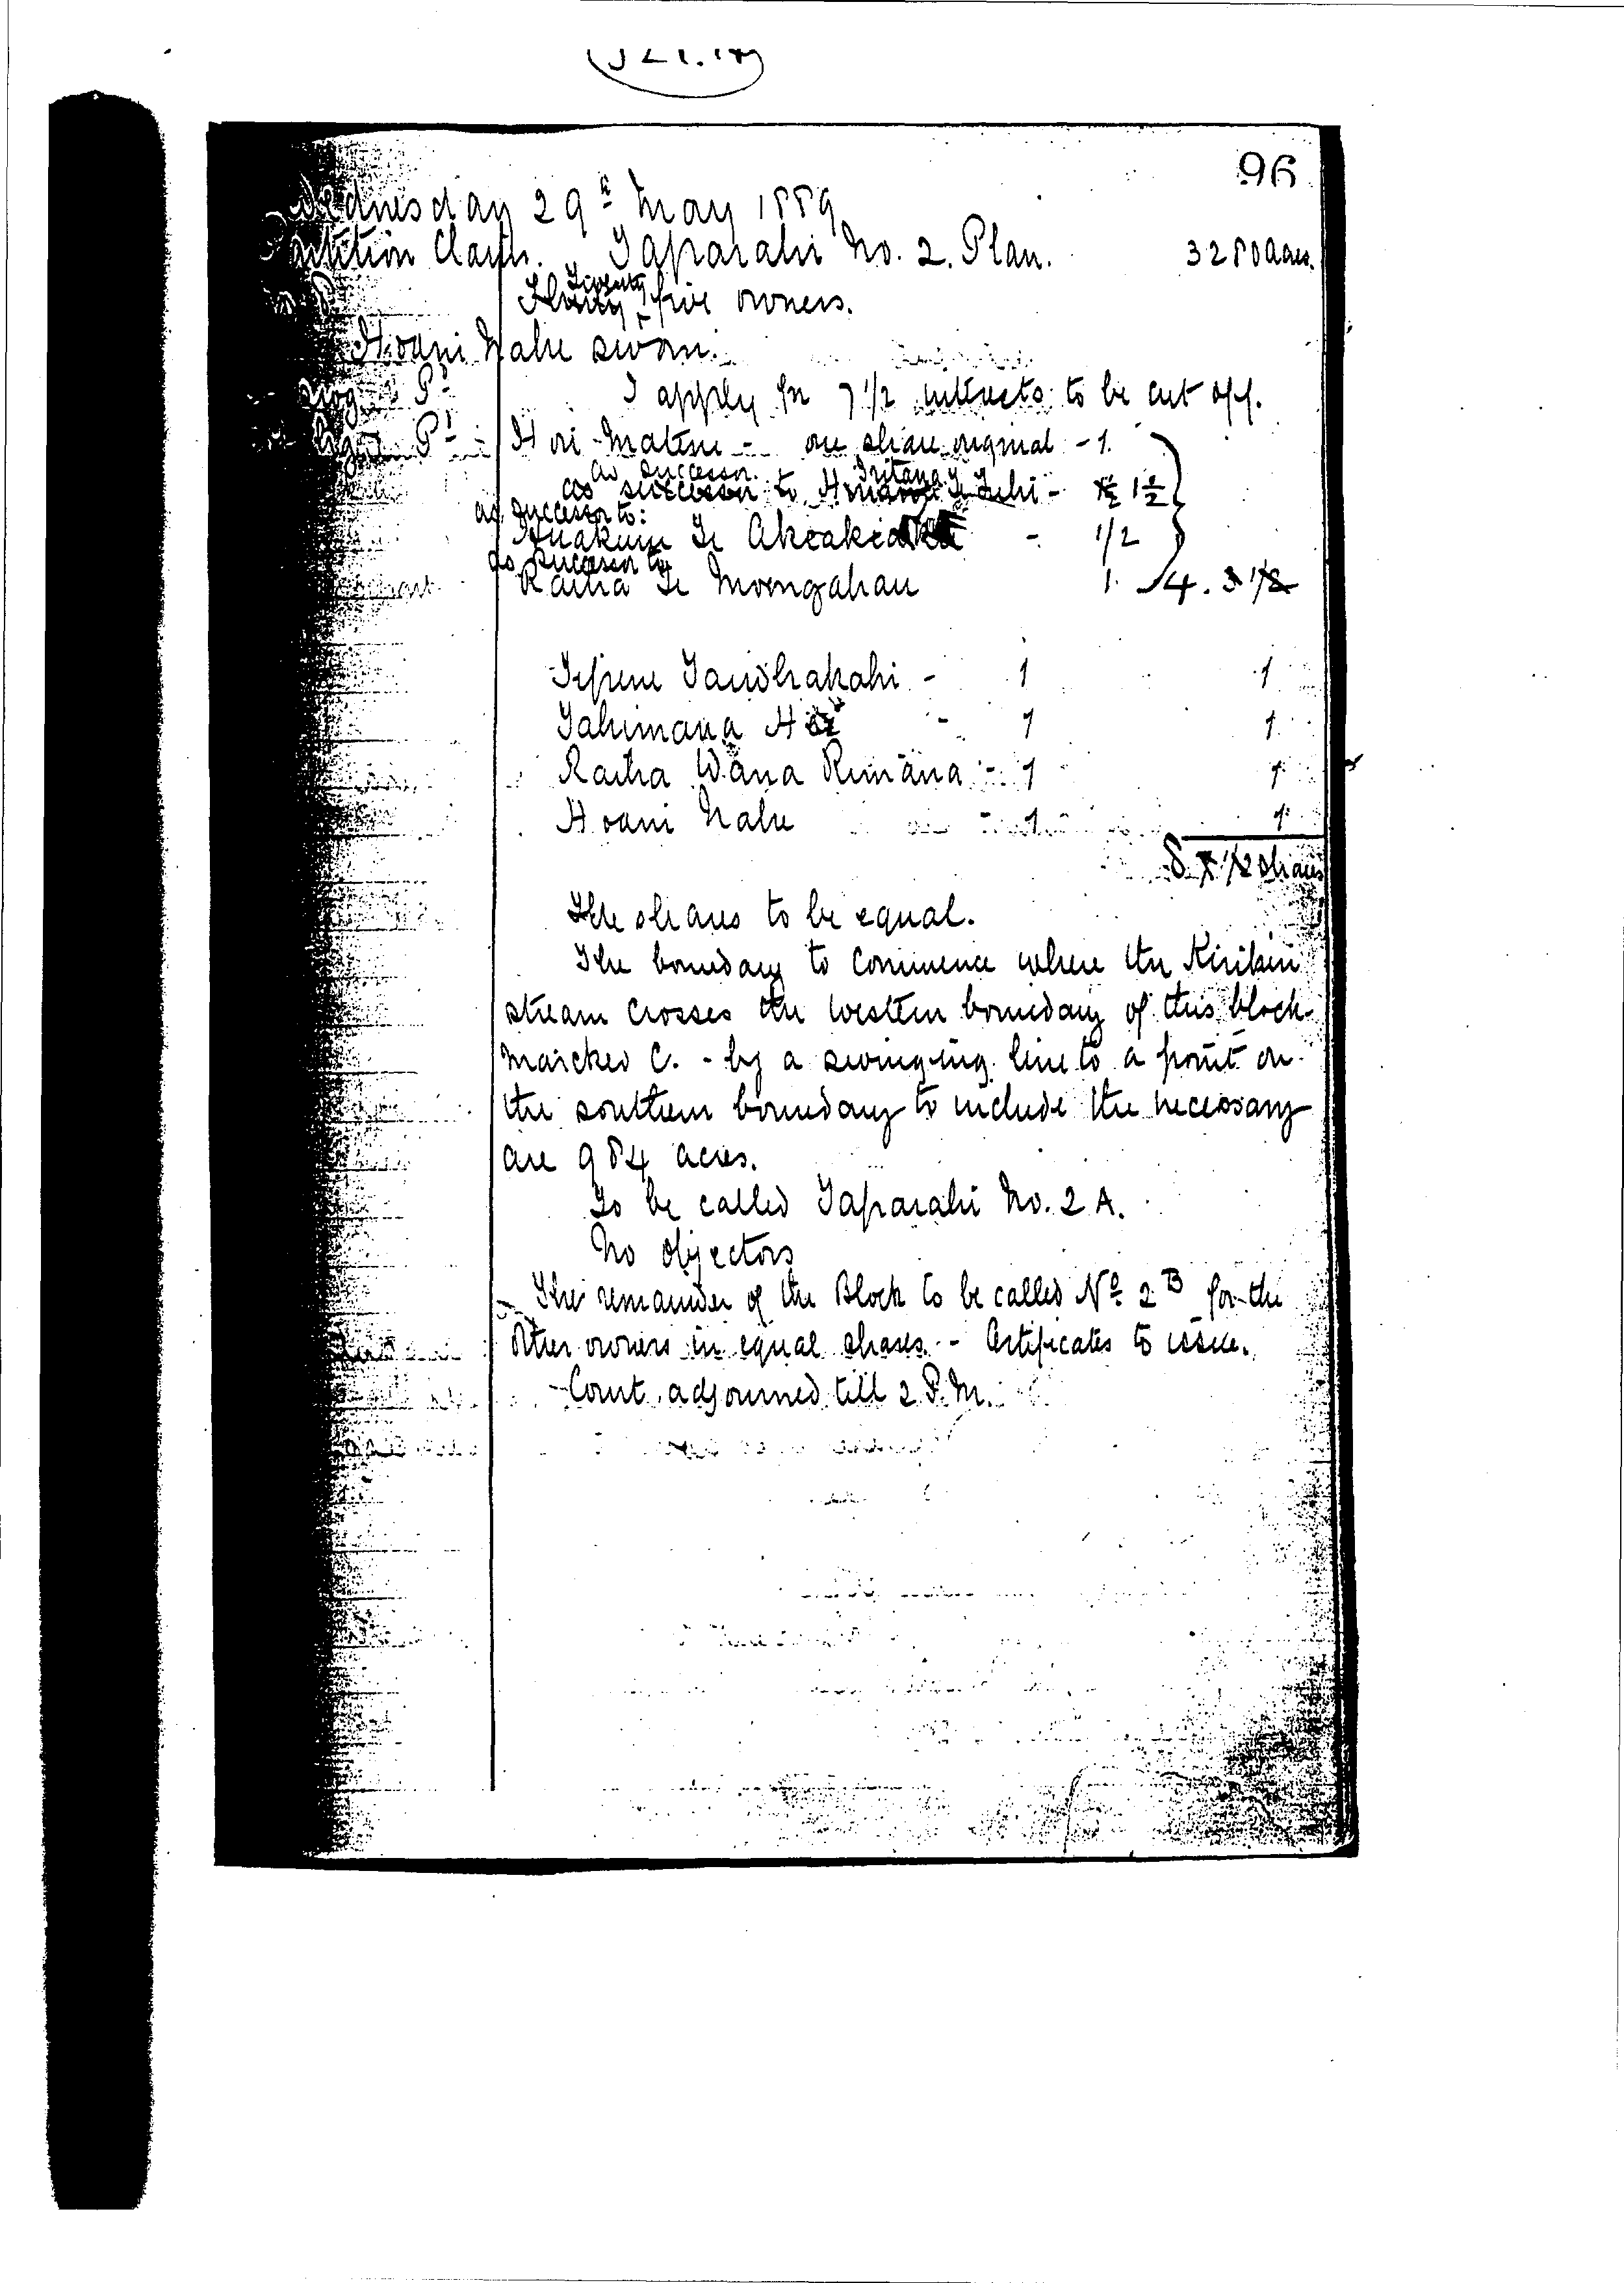 96
Wednesday 29th May 1889
Partition Claim. Taparahi No. 2. Plan. 3280 Acres.
Twenty
Thirty five owners.
Hoani Nahe sworn.
I apply for 7 1/2 interests to be cut off.
Hori Matene - one share original - 1.
as successor
as successor to Te Tuhi - 1 1/2
as successor to:
Te Akeake - 1/2
as successor to
Raiha Te Moengahau 1. 4. 3 1/2
Tipene Tawhakahi - 1 1
Tahimana 1 1
Raiha Wana Rimana - 1 1
Hoani Nahe - 1 1
8 7 1/2 shares
The shares to be equal.
The boundary to commence where the Kirikiri
stream crosses the western boundary of this block
marcked C. - by a swinging line to a point on
the southern boundary to include the necessary
are 984 acres.
To be called Taparahi No. 2 A.
No objectors
The remainder of the Block to be called No 2 B for the
other owners in equal shares. - Certificates to issue.
- Court adjourned till 2 P.M.